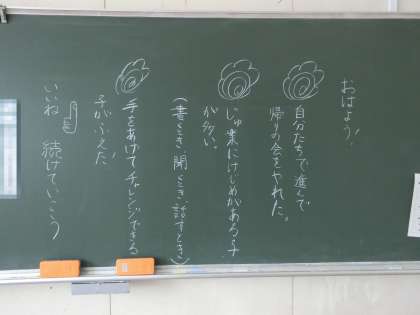 おはよう!
自分たちで進んで
帰りの会をやれた。
じゅ業にけじめがある子
が多い。
(書くとき、聞くとき、話すとき)
手をあげてチャレンジできる
子がふえた!
いいね 続けていこう